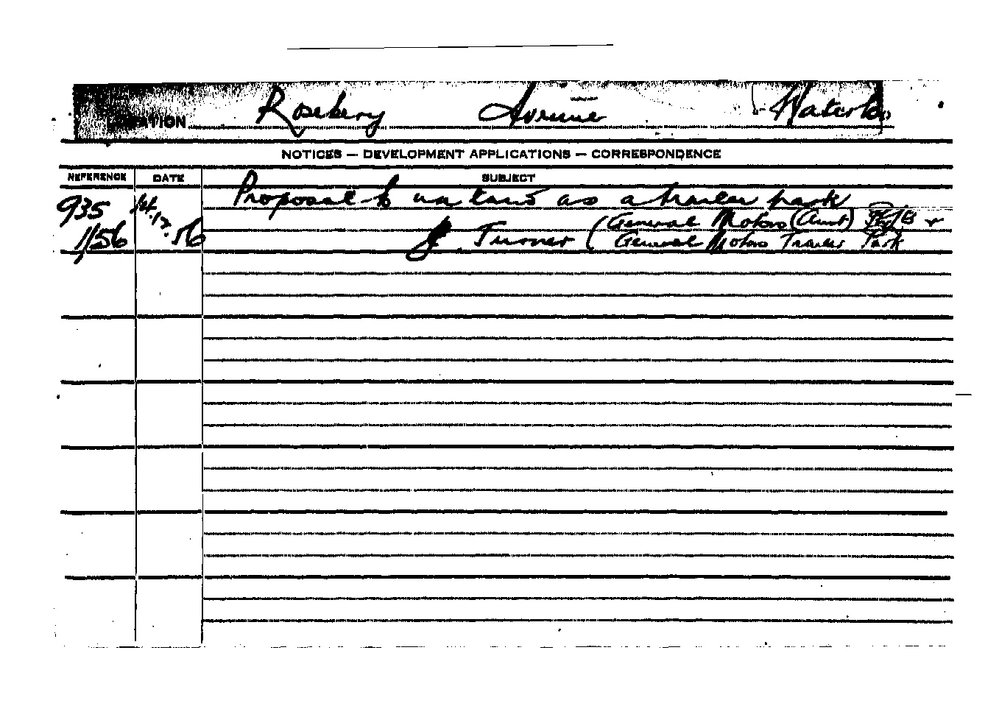 Rosebery Avenue Waterloo
NOTICES — DEVELOPMENT APPLICATIONS — CORRESPONDENCE
REFERENCE DATE SUBJECT
935 Proposal to use land as a trailer park
1/56 56 J. Turner (General Motors (Aust)
General Motors Trailer Park